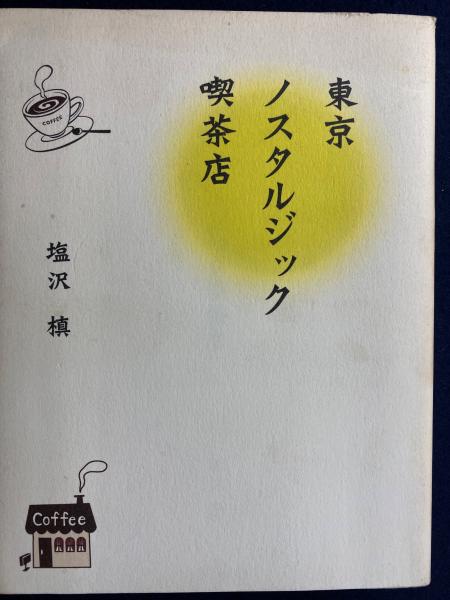 東京
ノスタルジック
喫茶店
塩沢 槙
COFFEE
Coffee